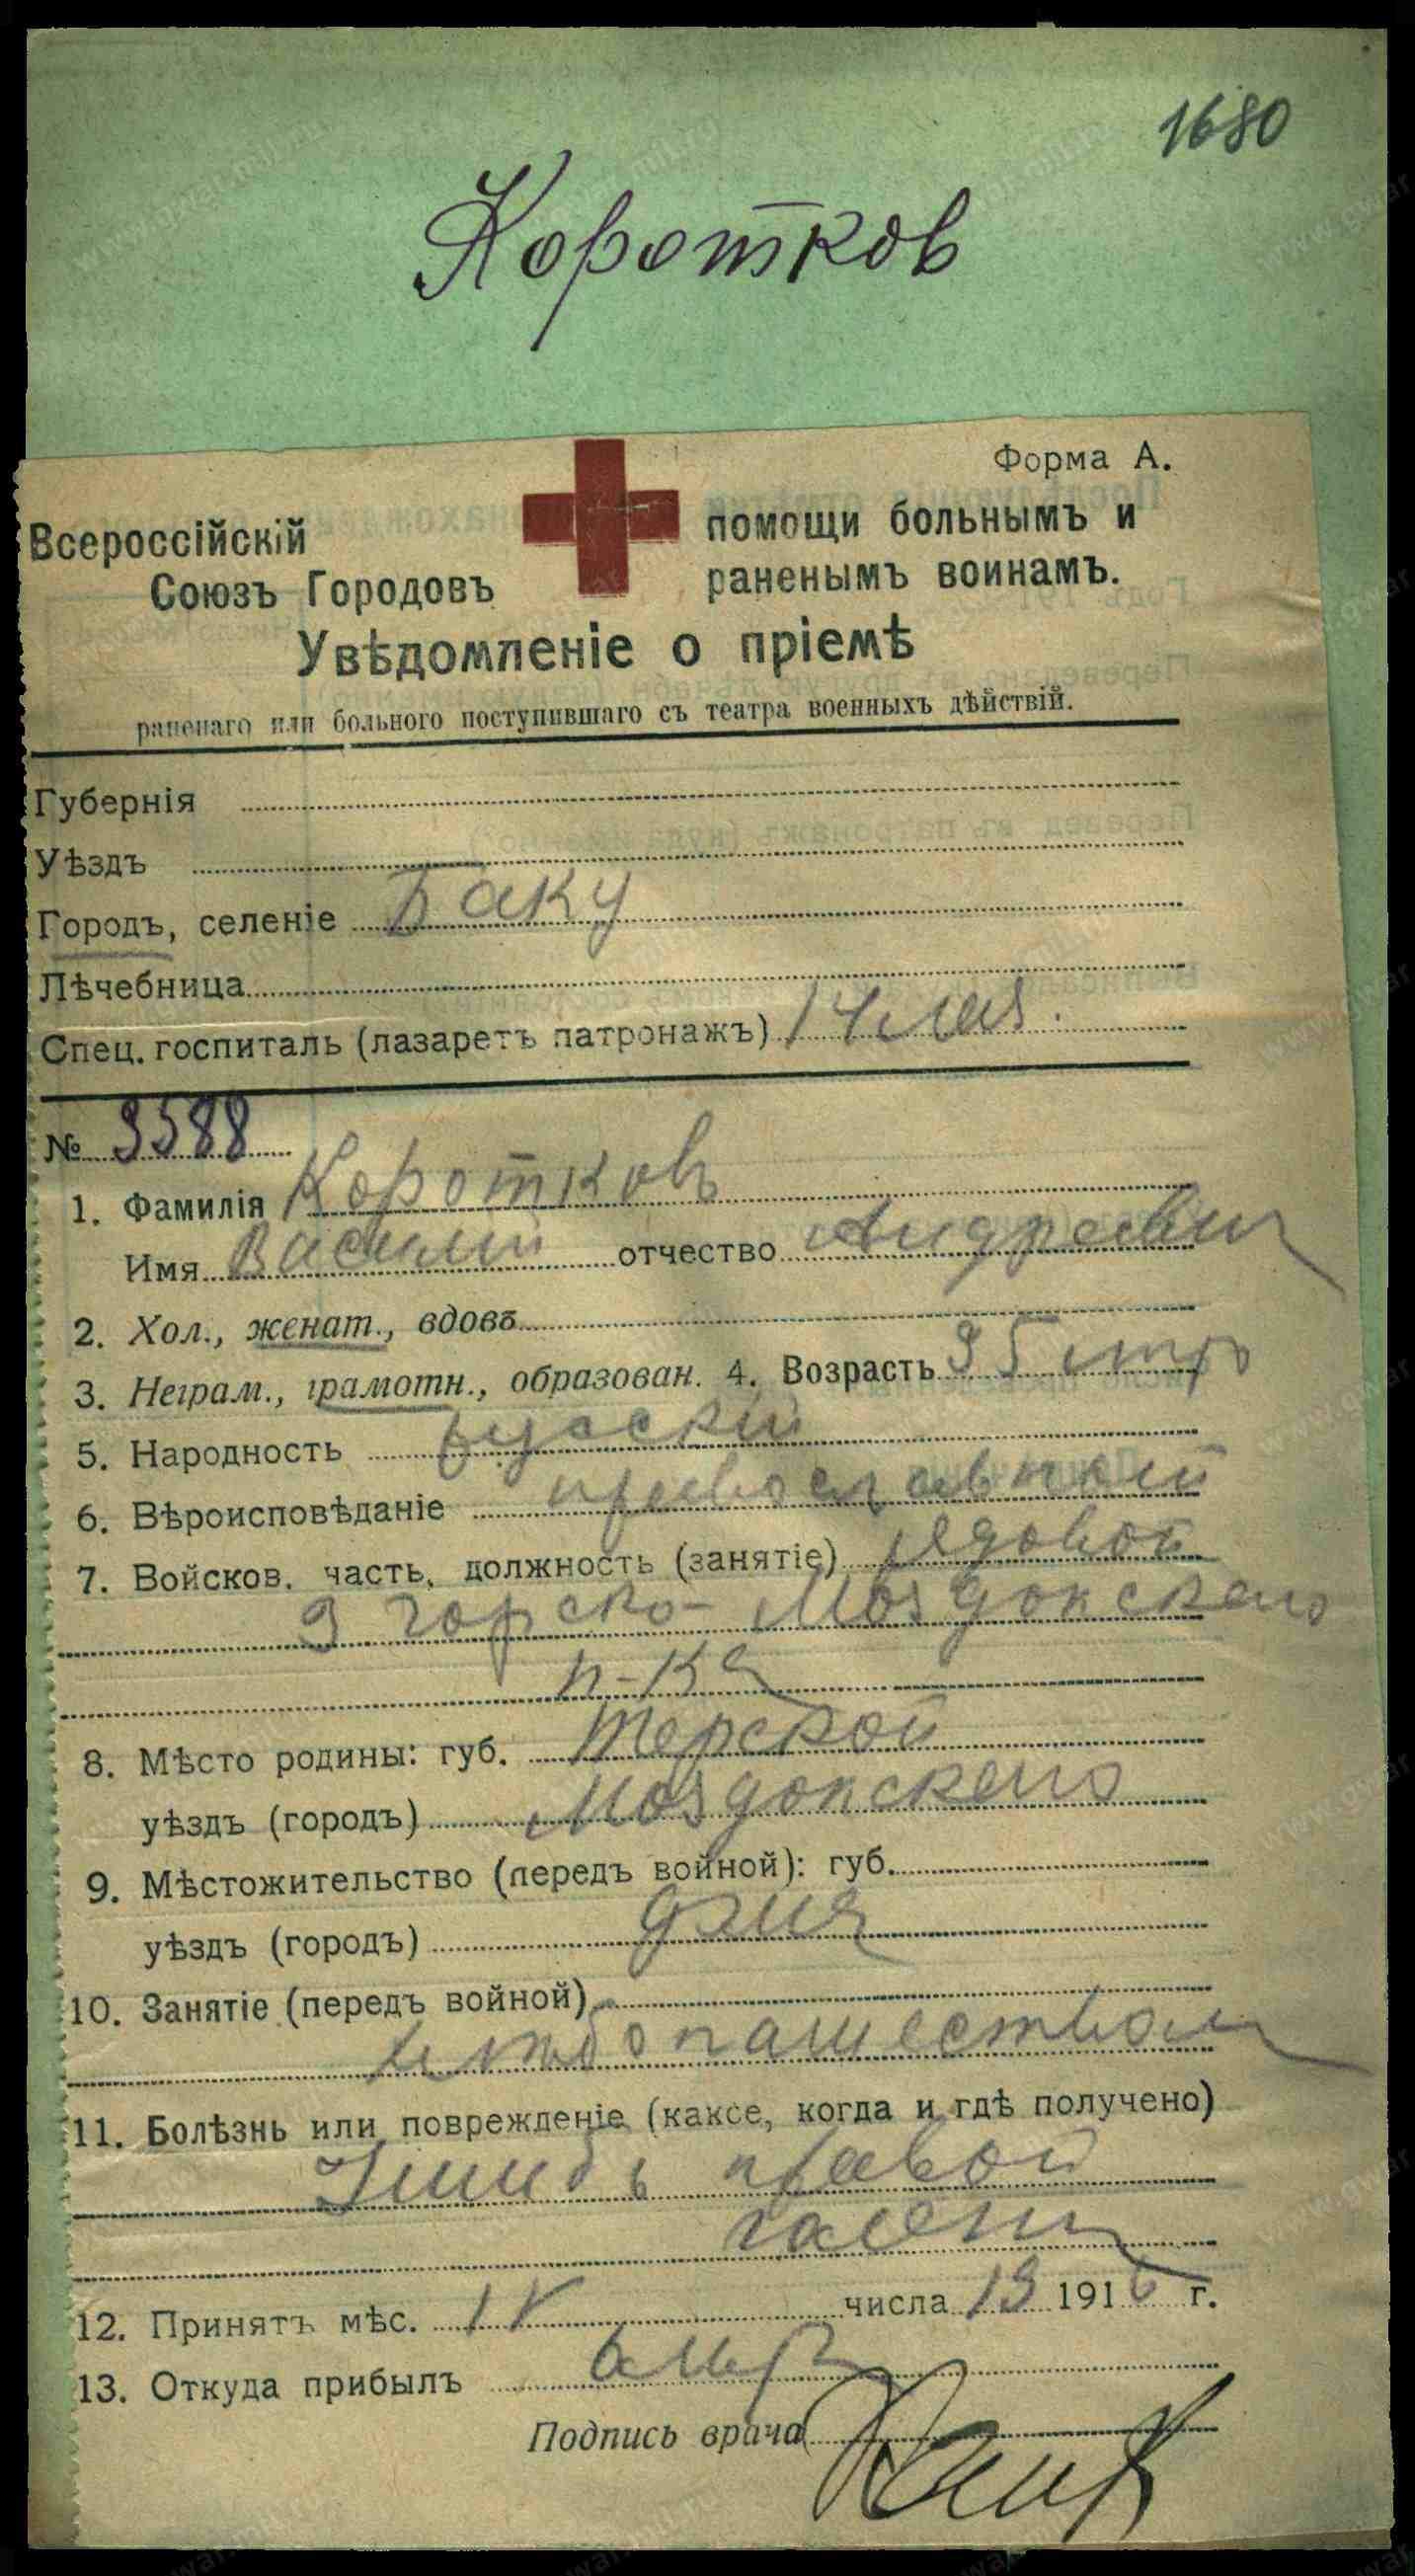 1680
Коротков
Форма А.
Всероссійскій
Союзъ Городовъ
помощи больнымъ и
раненымъ воинамъ.
Увѣдомленіе о пріемѣ
раненаго или больного поступившаго съ театра военныхъ дѣйствій.
Губернія
Уѣздъ
Городъ, селеніе Баку
Лѣчебница
Спец. госпиталь (лазаретъ патронажъ) 14 лаз.
№ 3588
1. Фамилія Коротковъ
Имя Василій отчество Андреевич
2. Хол., женат., вдовъ
3. Неграм., грамотн., образован. 4. Возрастъ 35
5. Народность русскій
6. Вѣроисповѣданіе православный
7. Войсков. часть, должность (занятіе) рядовой
3 горско-Моздокскаго
п-ка
8. Мѣсто родины: губ. Терской
уѣздъ (городъ) Моздокскаго
9. Мѣстожительство (передъ войной): губ.
уѣздъ (городъ)
10. Занятіе (передъ войной)
хлѣбопашеством
11. Болѣзнь или поврежденіе (какое, когда и гдѣ получено)
Ушибъ правой
голени
12. Принятъ мѣс. IV числа 13 1916 г.
13. Откуда прибылъ
Подпись врача